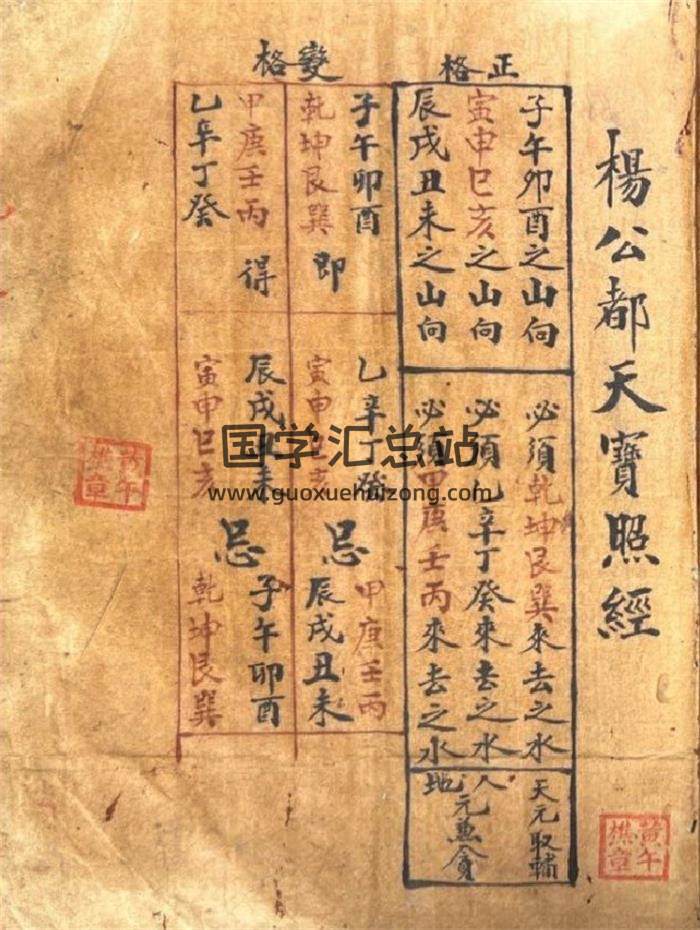 楊公都天寶照經
正格
子午卯酉之山向
必須乾坤艮巽來去之水
天元取輔
寅申巳亥之山向
必須乙辛丁癸來去之水
辰戌丑未之山向
必須甲庚壬丙來去之水
人地
元兼貪
變格
子午卯酉
乾坤艮巽
即
乙辛丁癸
寅申巳亥
忌
甲庚壬丙
辰戌丑未
甲庚壬丙
乙辛丁癸
得
辰戌丑未
寅申巳亥
忌
子午卯酉
乾坤艮巽
国学汇总站
www.guoxuehuizong.com